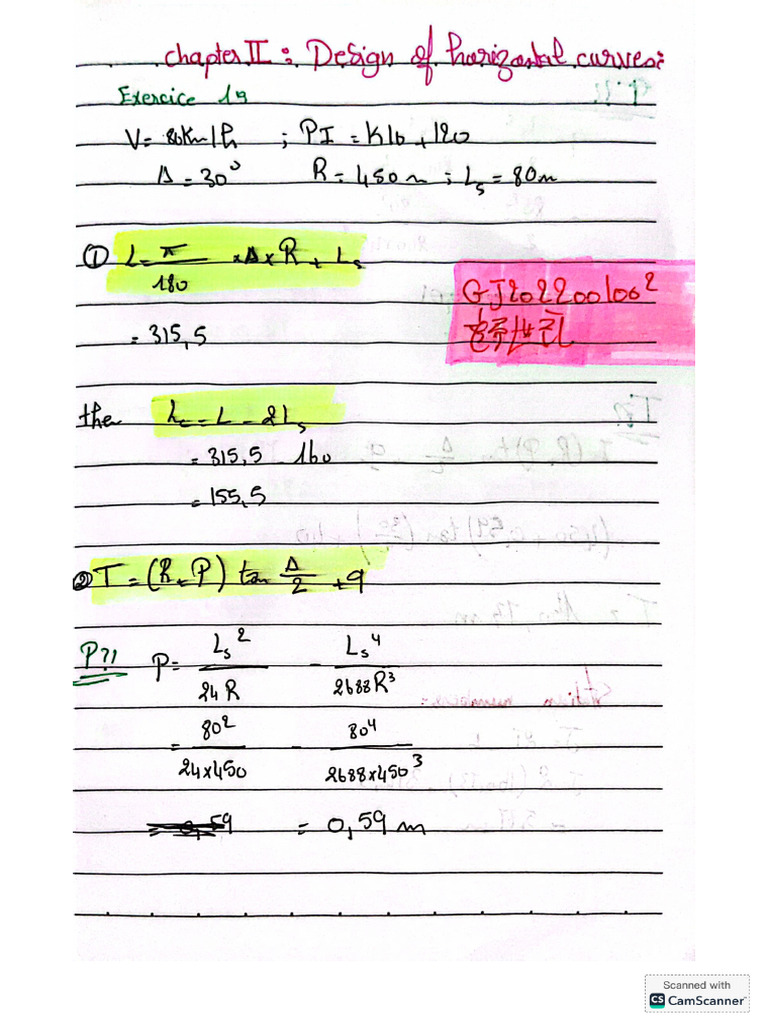 chapter II : Design of horizontal curves:
Exercice 19
V= 80Km/h ; PI = K16+120
Δ = 30° R = 450 m ; Ls = 80m
① L = π/180 × Δ × R + Ls
= 315,5
GJ202200100²
the Lc = L - 2Ls
= 315,5 - 160
= 155,5
② T = (R+P) tan Δ/2 + q
P?! P = Ls²/24R - Ls⁴/2688R³
= 80²/24×450 - 80⁴/2688×450³
= 0,59 m
Scanned with
CS CamScanner